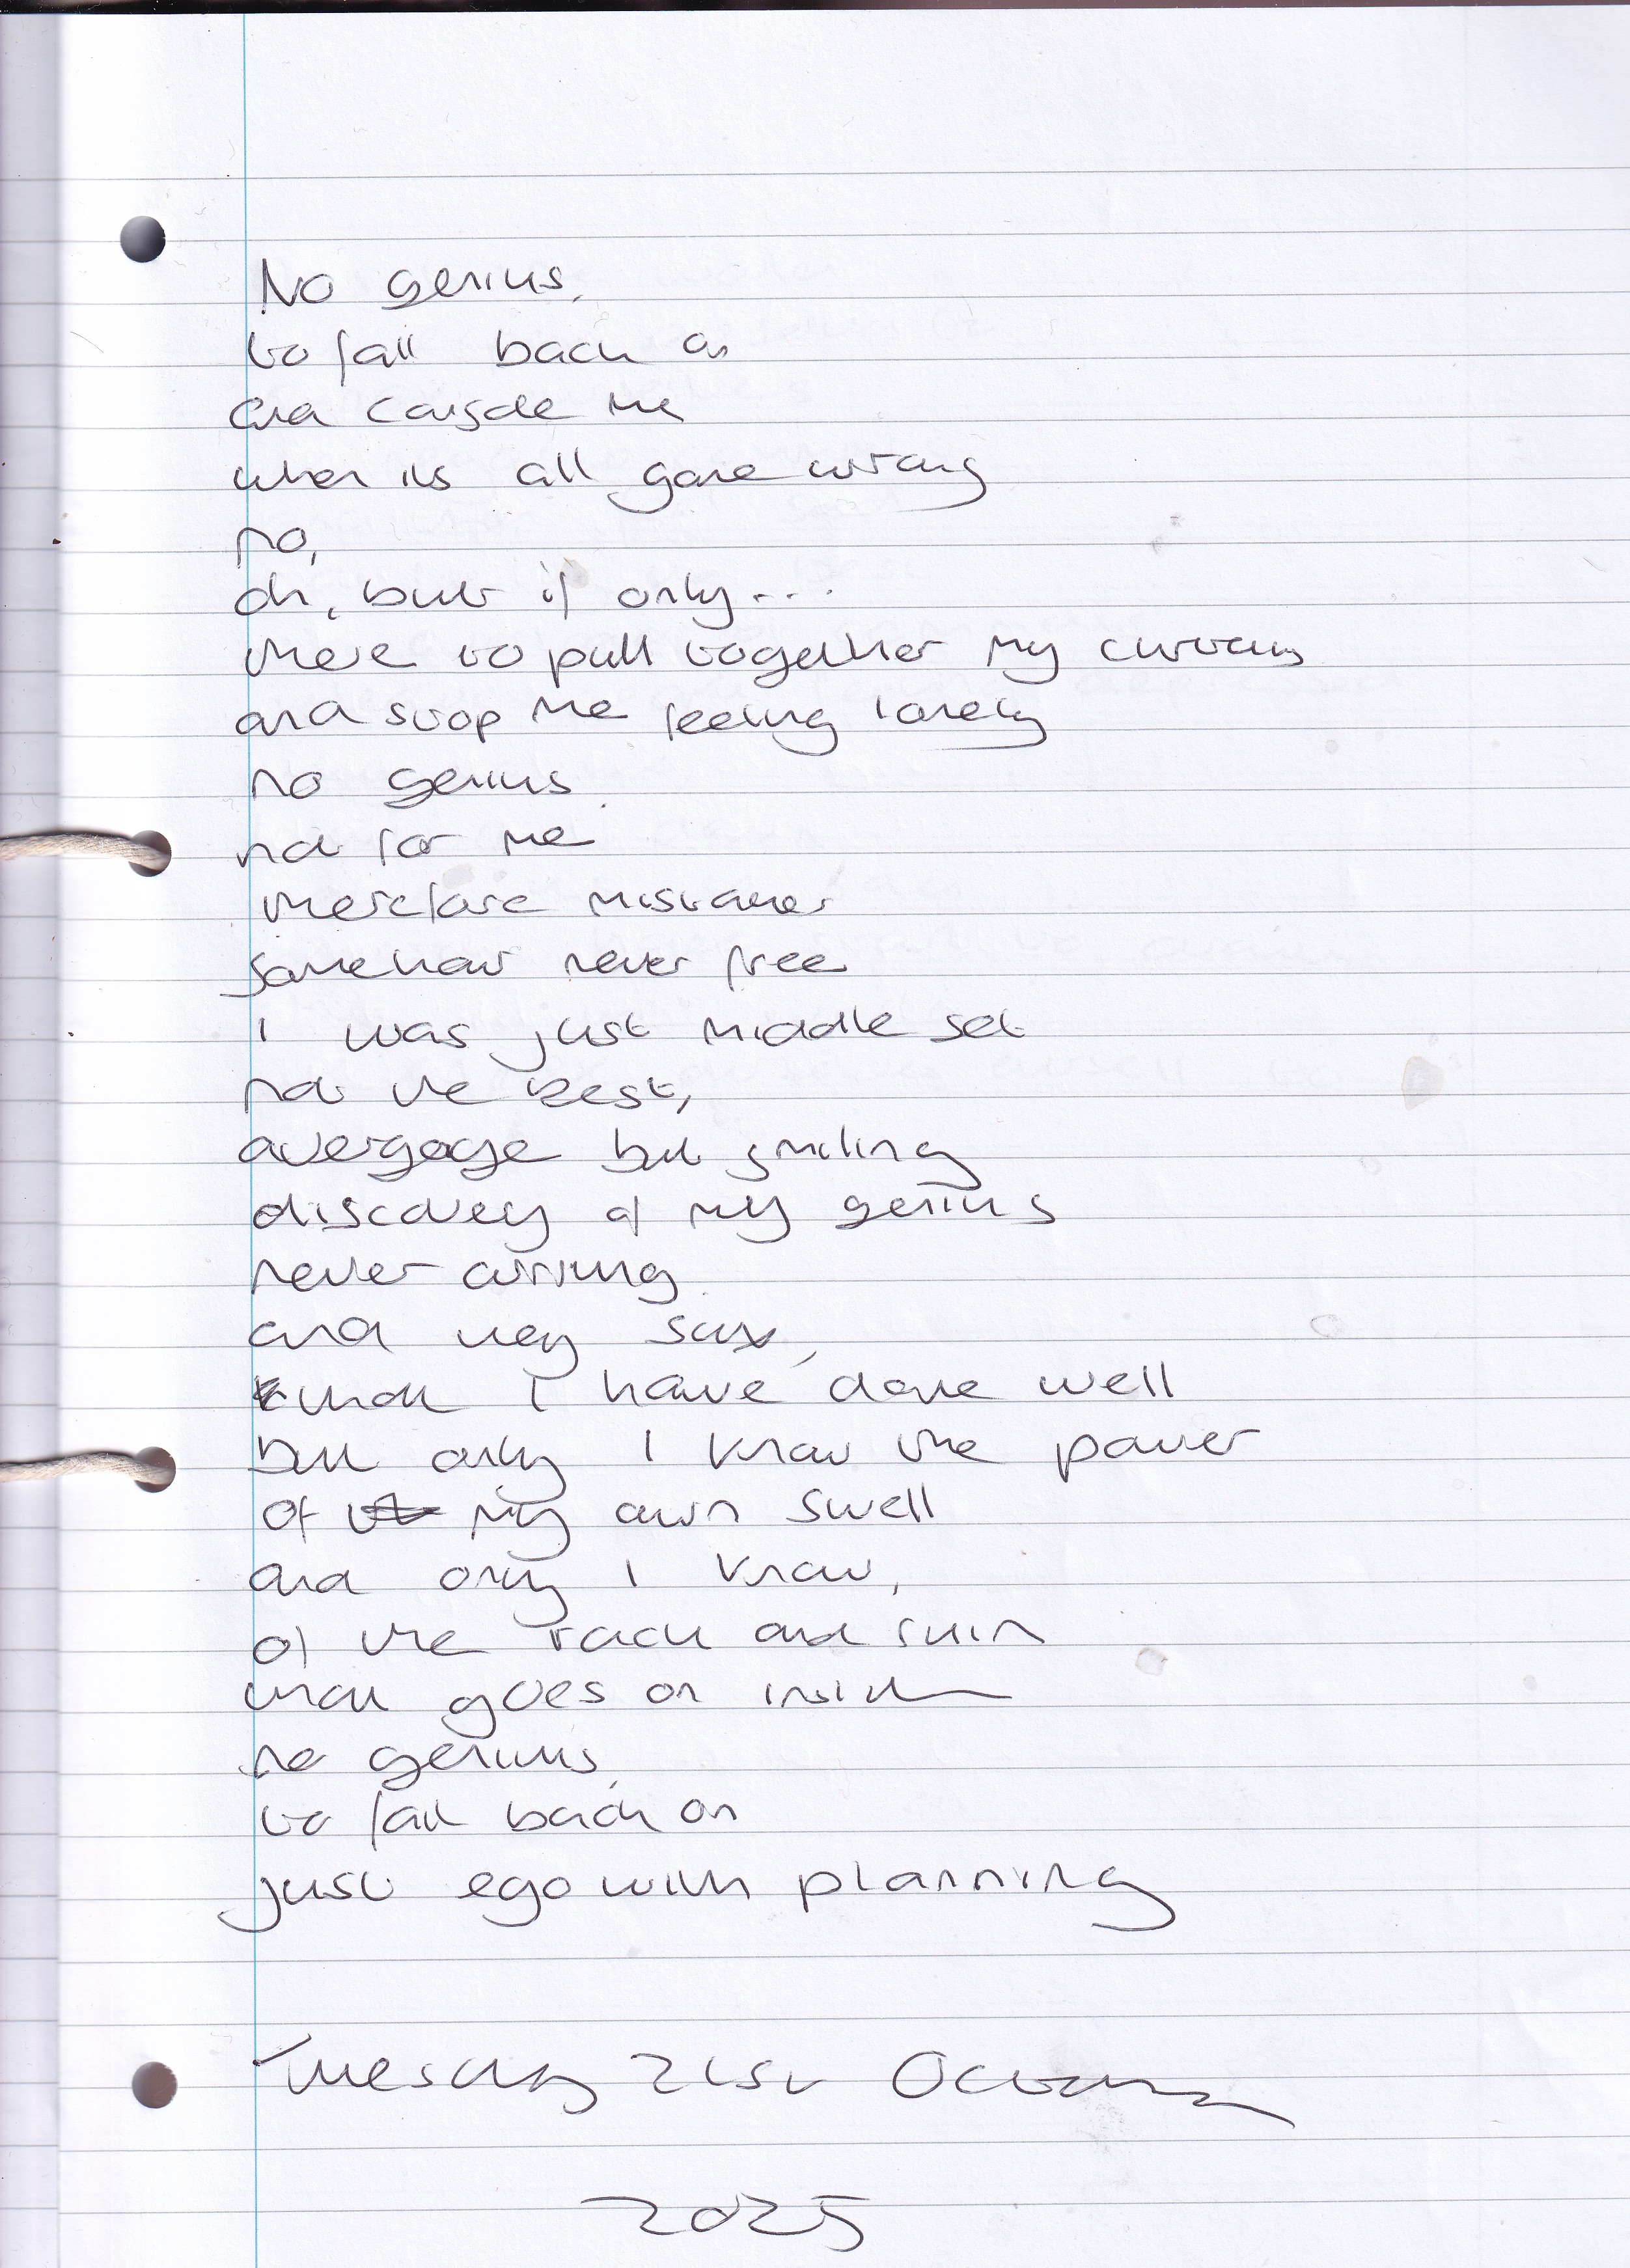 No genius,
to fall back on
and console me
when its all gone wrong
no,
oh, but if only...
there to pull together my curtains
and stop me feeling lonely
no genius
not for me
therefore mistaken
somehow never free
I was just middle set
not the best,
avergage but smiling
discovery of my genius
never arriving
and they say,
that I have done well
but only I know the power
of my own swell
and only I know,
of the rack and ruin
that goes on inside
no genius,
to fall back on
just ego with planning
Tuesday 21st October
2025